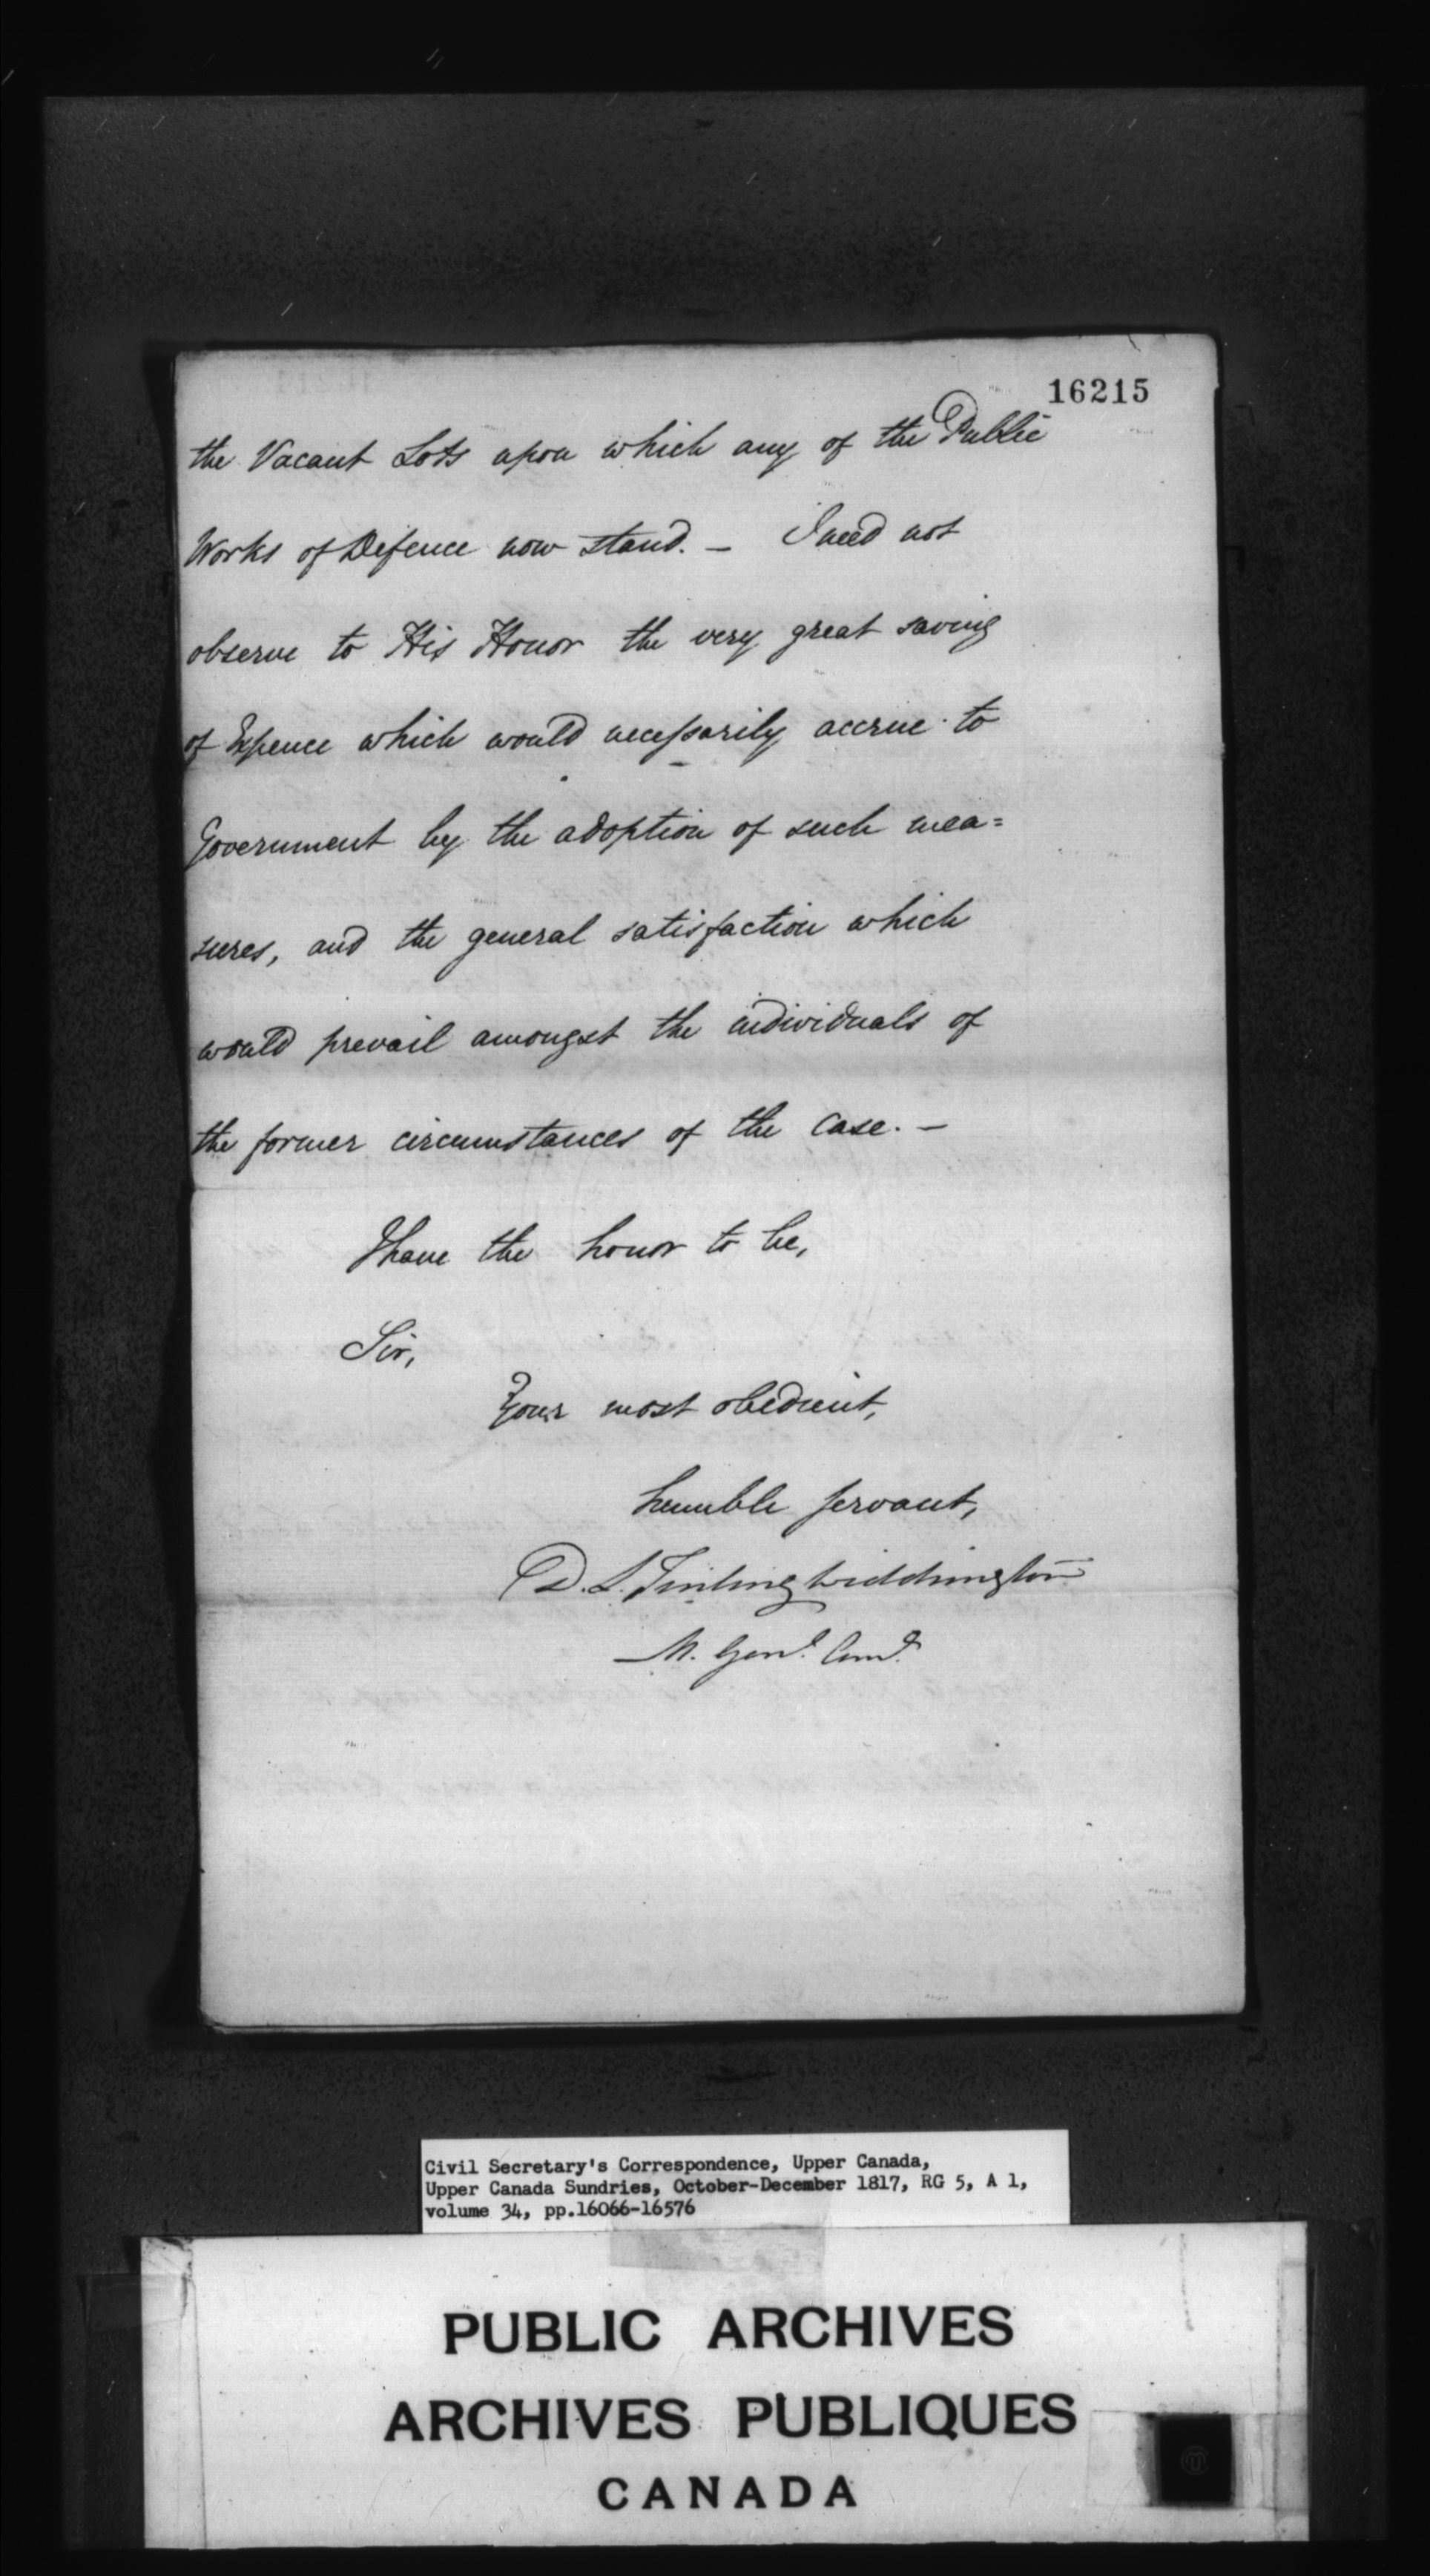 16215
the Vacant Lots upon which any of the Public
Works of Defence now stand. – I need not
observe to His Honor the very great saving
of Expence which would necessarily accrue to
Government by the adoption of such mea=
sures, and the general satisfaction which
would prevail amongst the individuals of
the former circumstances of the Case. –
I have the honor to be,
Sir,
Your most obedient,
humble servant,
D. L. Tinling Widdrington
M. Genl. Comd.
Civil Secretary's Correspondence, Upper Canada,
Upper Canada Sundries, October-December 1817, RG 5, A 1,
volume 34, pp.16066-16576
PUBLIC ARCHIVES
ARCHIVES PUBLIQUES
CANADA